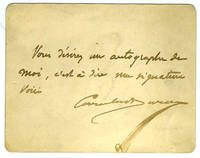 Vous désirez un autographe de
moi, c'est à dire ma signature
Voici